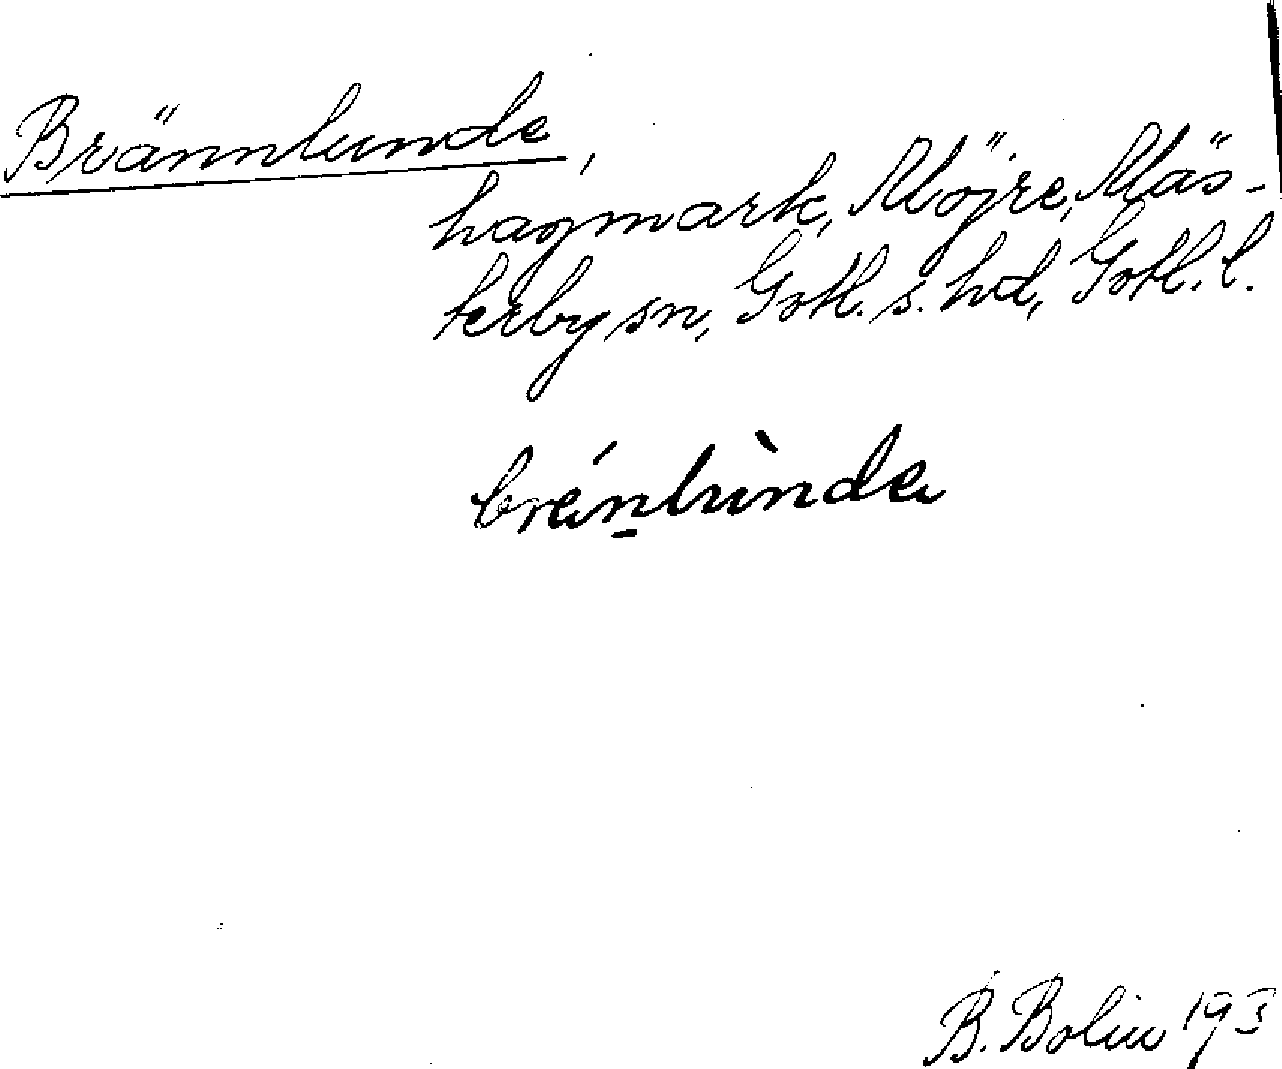 Brännlunde,
hagmark, Möjre, Mäs-
terby sn, Gotl. s. hd, Gotl. l.
bränlùnda
B. Bolin 193